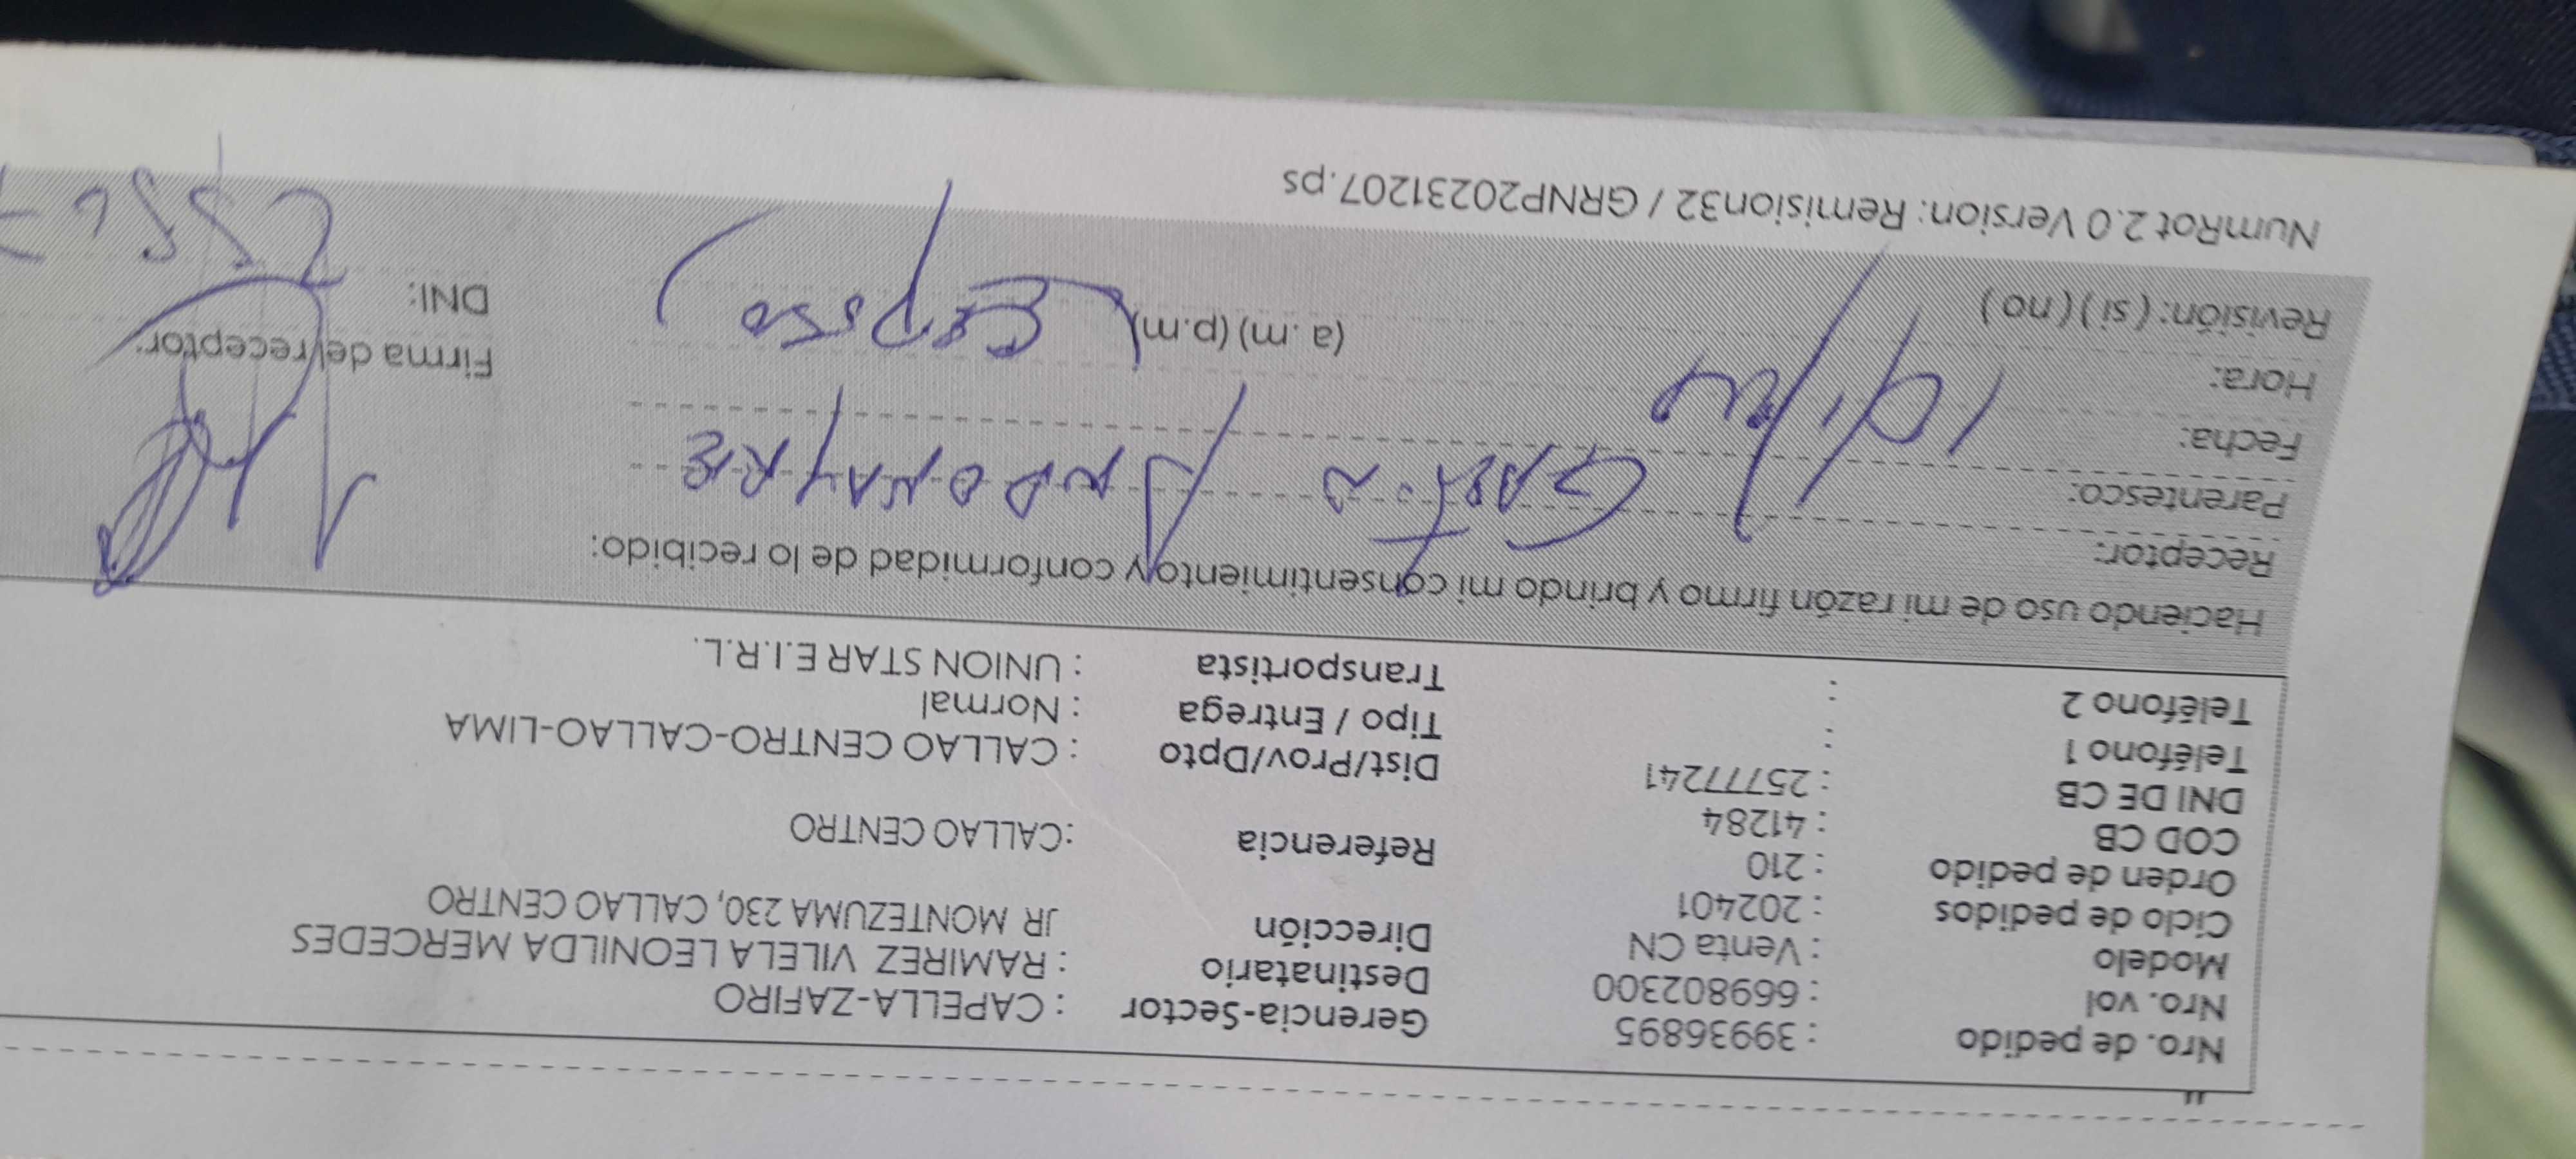 Nro. de pedido : 39936895 Gerencia-Sector : CAPELLA-ZAFIRO
Nro. vol : 669802300 Destinatario : RAMIREZ VILELA LEONILDA MERCEDES
Modelo : Venta CN Dirección JR MONTEZUMA 230, CALLAO CENTRO
Ciclo de pedidos : 202401
Orden de pedido : 210 Referencia :CALLAO CENTRO
COD CB : 41284
DNI DE CB : 25777241 Dist/Prov/Dpto : CALLAO CENTRO-CALLAO-LIMA
Teléfono 1 : Tipo / Entrega : Normal
Teléfono 2 : Transportista : UNION STAR E.I.R.L.
Haciendo uso de mi razón firmo y brindo mi consentimiento y conformidad de lo recibido:
Receptor:
Parentesco:
Fecha:
Hora: (a.m) (p.m) Firma del receptor:
Revisión: ( si ) ( no ) DNI:
NumRot 2.0 Version: Remision32 / GRNP20231207.ps